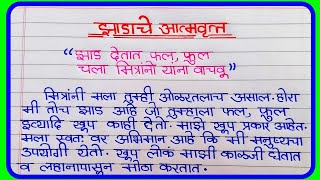 झाडाचे आत्मवृत्त
“ झाड देतात फळ, फुल
चला मित्रांनो यांना वाचवू ”
मित्रांनी मला तुम्ही ओळखलाच असाल. होरा
मी तोच झाड आहे जो तुम्हाला फळ, फुल
इत्यादि खूप काही देतो. माझे खूप प्रकार आहेत.
मला स्वतः वर अभिमान आहे कि मी मनुष्याचा
उपयोगी येतो. खूप लोकं माझी काळजी घेतात
व लहानापासून मोठा करतात.